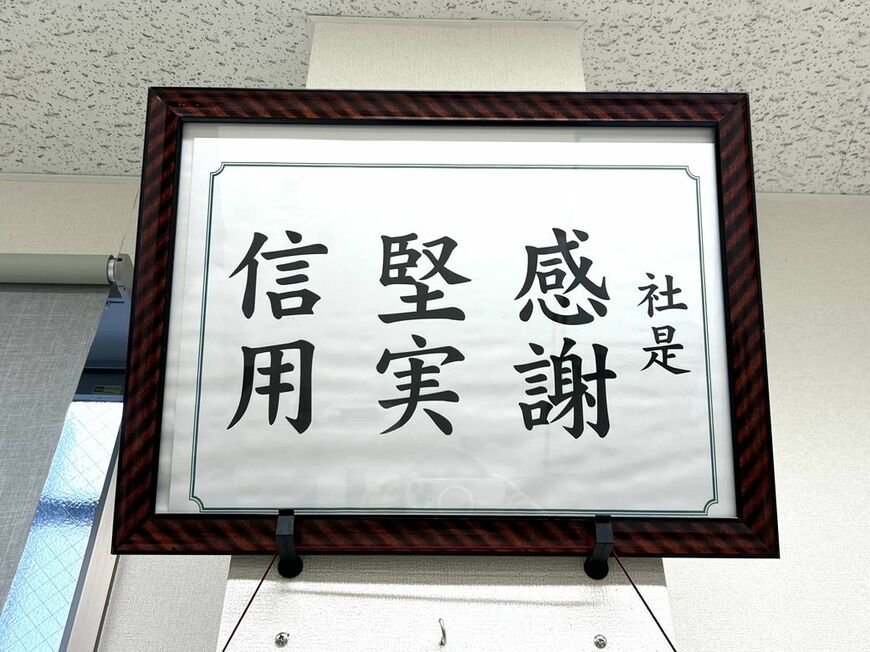 社是
感謝
堅実
信用